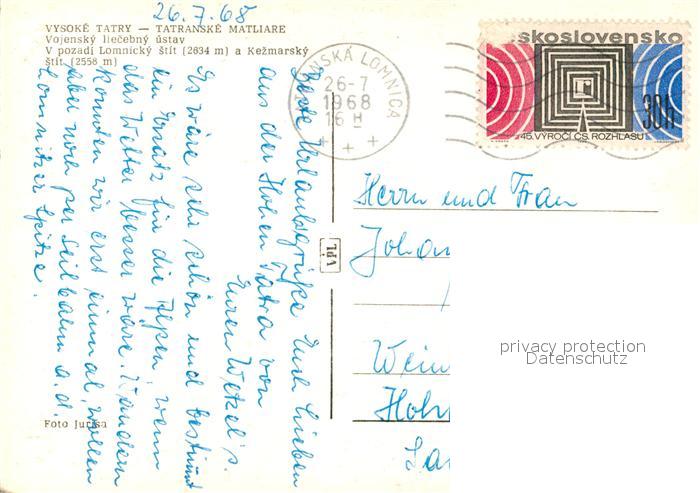 26.7.68
VYSOKÉ TATRY — TATRANSKÉ MATLIARE
Vojenský liečebný ústav
V pozadí Lomnický štít (2634 m) a Kežmarský
štít (2558 m)
Beste Urlaubsgrüße Euch Lieben
aus der Hohen Tatra von
Euren Wetzel's.
Es wäre sehr schön und bestimmt
ein Ersatz für die Alpen, wenn
das Wetter besser wäre. Wandern
konnten wir erst einmal, wollen
aber noch per Seilbahn a. d.
Lomnitzer Spitze.
Foto Jursa
VPL
TATRANSKÁ LOMNICA
26-7
1968
16 H
československo
30h
45. VÝROČÍ ČS. ROZHLASU
Herrn und Frau
Johan
Wein
Hohn
privacy protection
Datenschutz